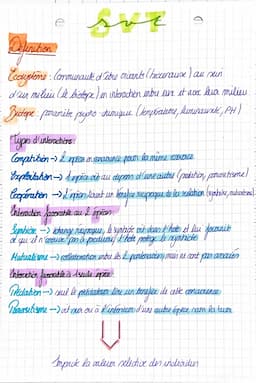 SVT
Définition
Ecosystème : Communauté d'être vivants (biocénose) au sein
d'un milieu (le biotope) en interaction entre eux et avec leur milieu
Biotope : paramètre physico-chimique (température, luminosité, PH)
Types d'interactions :
Compétition → 2 espèces en concurrence pour la même ressource
Exploitation → L'espèce vit au dépend d'une autre (prédation, parasitisme)
Coopération → L'espèce tirent un bénéfice réciproque de la relation (symbiose, mutualisme)
Interaction favorable au 2 espèces
Symbiose → échange réciproque, le symbiote vit dans l'hôte et lui fournit
ce qu'il n'arrive pas à produire, l'hôte protège le symbiote
Mutualisme → collaboration entre les 2 partenaires, mais ne sont pas associés
Interaction favorable à 1 seule espèce
Prédation → seul le prédateur tire un bénéfice de cette
Parasitisme → vit sur ou à l'intérieur d'une autre espèce
Impacte la valeur sélective des individus